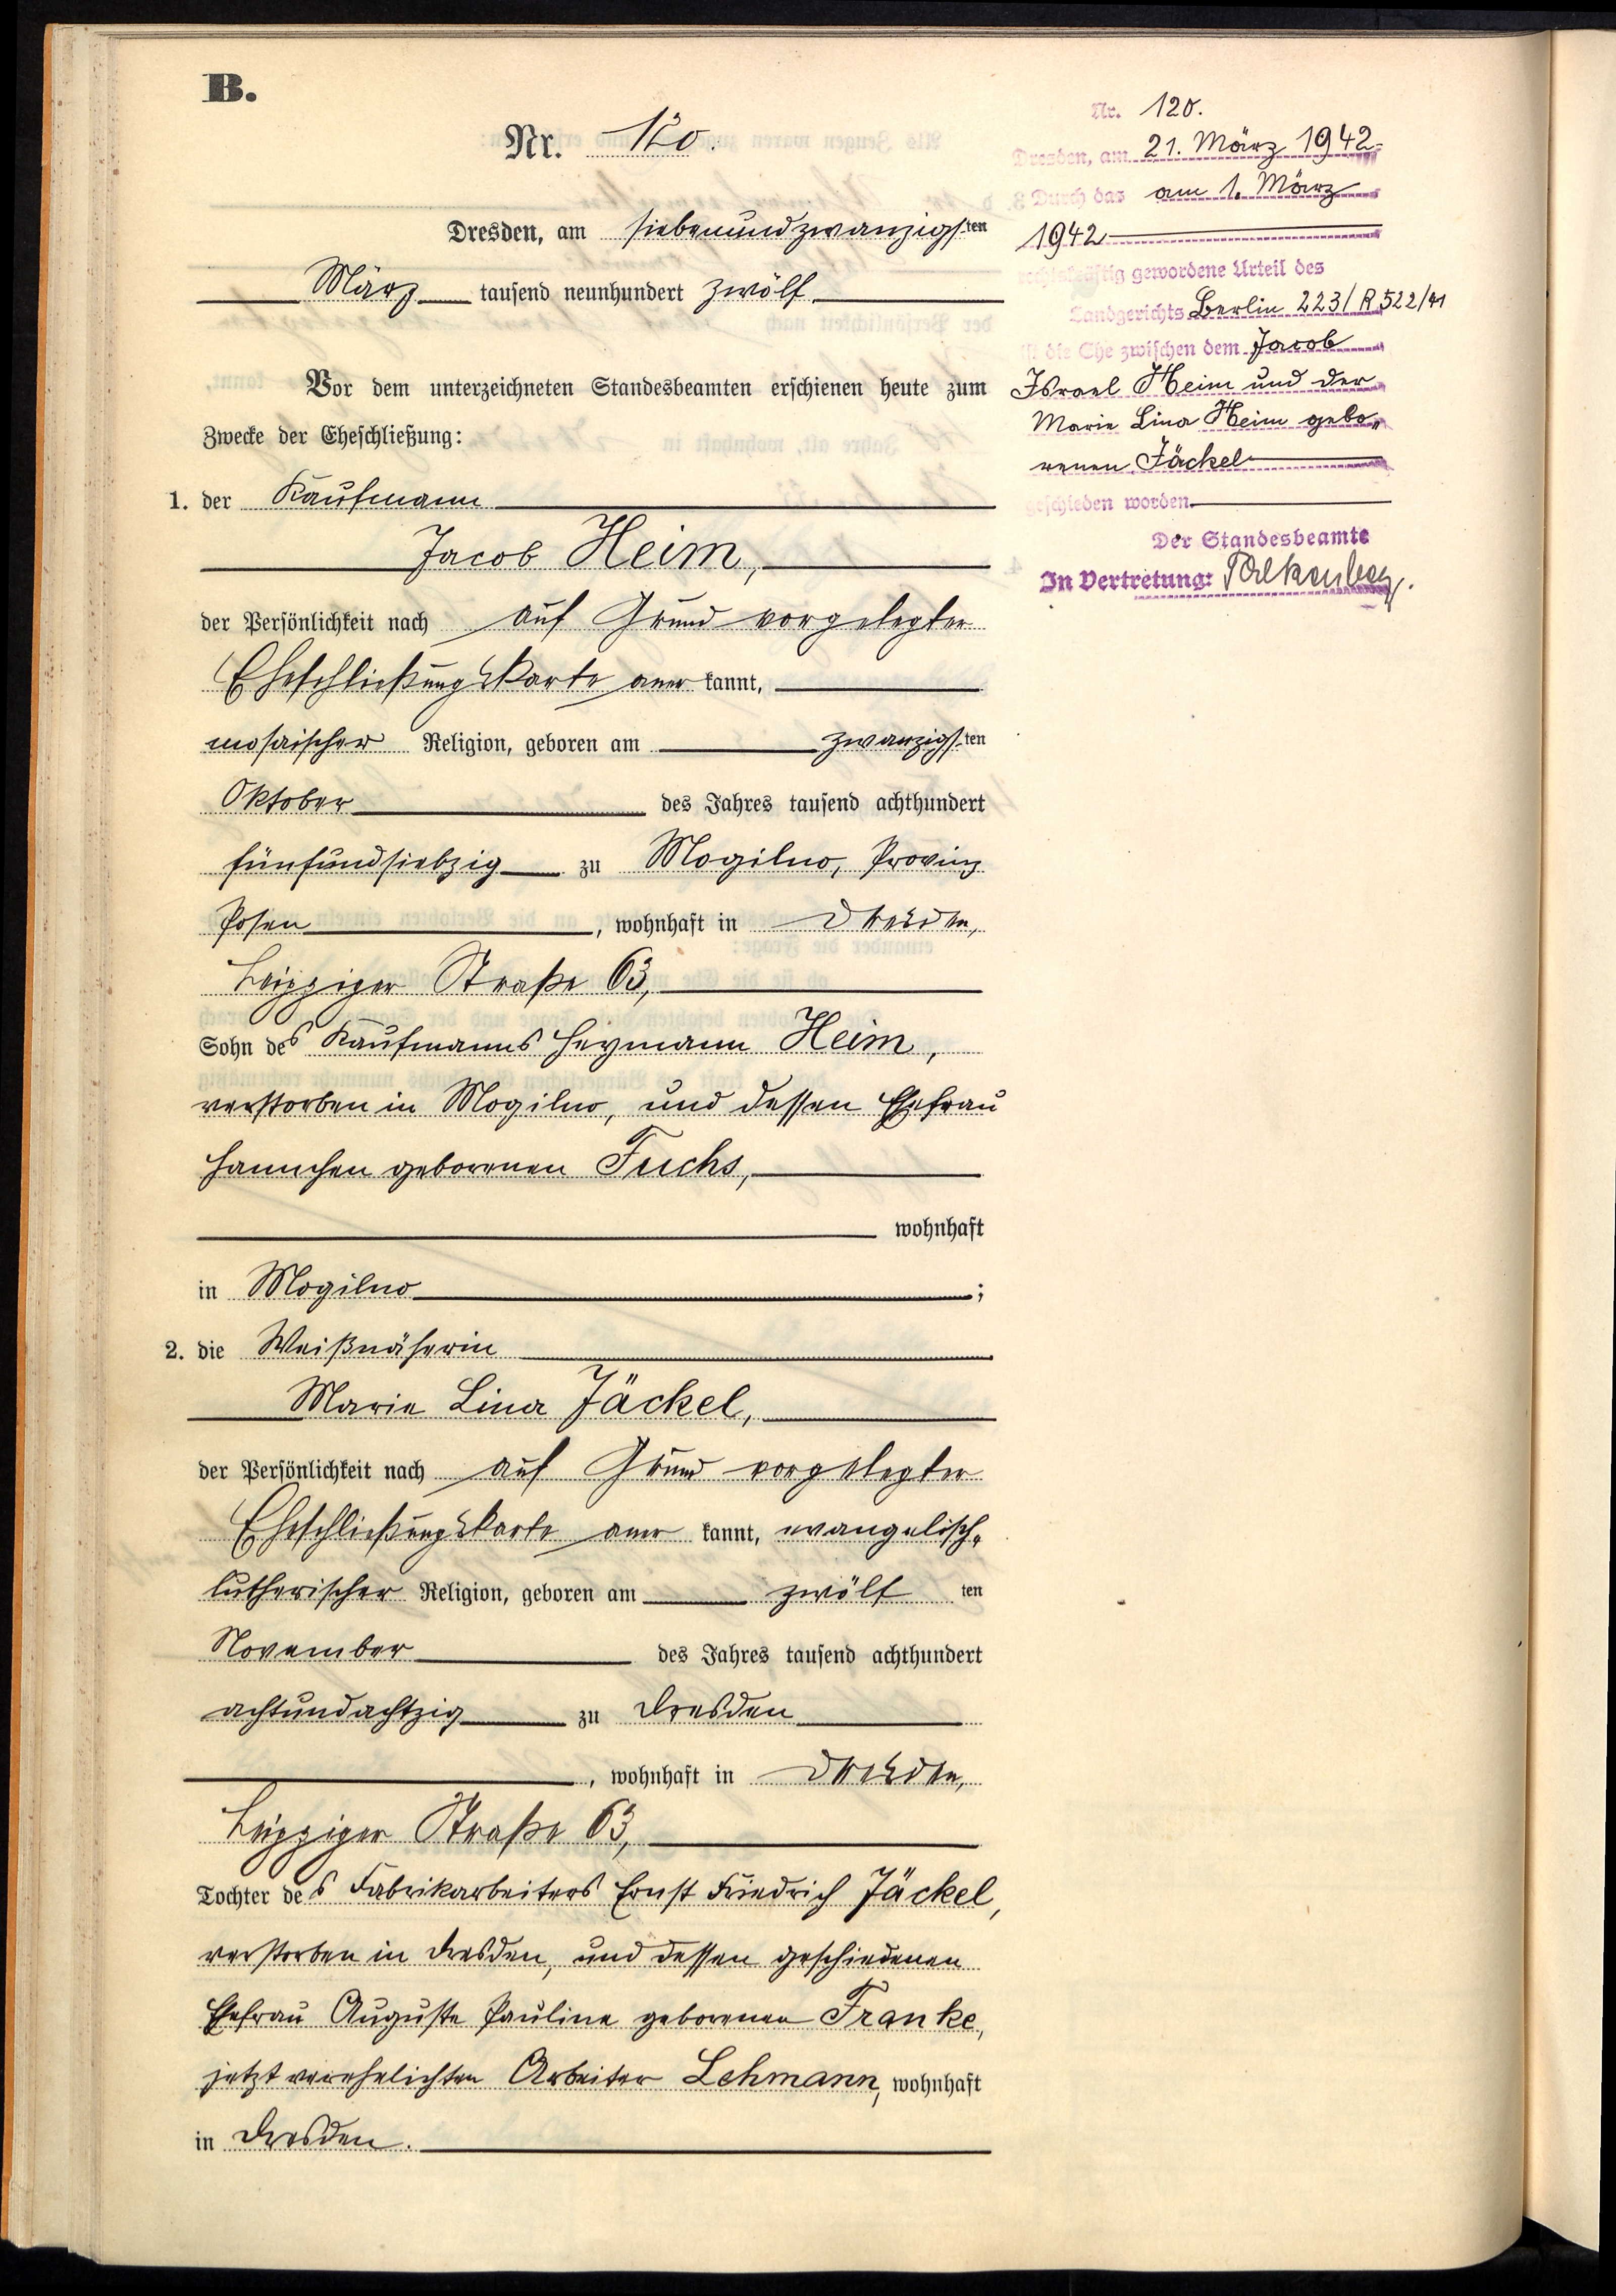 B.
Nr. 120.
Dresden, am siebenundzwanzigsten
März tausend neunhundert zwölf
Vor dem unterzeichneten Standesbeamten erschienen heute zum
Zwecke der Eheschließung:
1. der Kaufmann
Jacob Heim,
der Persönlichkeit nach auf Grund vorgelegter
Eheschließungskarte anerkannt,
mosaischer Religion, geboren am zwanzigsten
Oktober des Jahres tausend achthundert
fünfundsiebzig zu Mogilno, Provinz
Posen, wohnhaft in Dresden,
Leipziger Straße 63,
Sohn des Kaufmanns Heymann Heim,
verstorben in Mogilno, und dessen Ehefrau
Hannchen geborenen Fuchs,
wohnhaft
in Mogilno;
2. die Weißnäherin
Marie Lina Jäckel,
der Persönlichkeit nach auf Grund vorgelegter
Eheschließungskarte anerkannt, evangelisch-
lutherischer Religion, geboren am zwölften
November des Jahres tausend achthundert
achtundachtzig zu Dresden
, wohnhaft in Dresden,
Leipziger Straße 63,
Tochter des Fabrikarbeiters Ernst Friedrich Jäckel,
verstorben in Dresden, und dessen geschiedenen
Ehefrau Auguste Pauline geborenen Franke,
jetzt verehelichten Arbeiter Lehmann, wohnhaft
in Dresden.
Nr. 120.
Dresden, am 21. März 1942.
Durch das am 1. März
1942
rechtskräftig gewordene Urteil des
Landgerichts Berlin 223/R 522/41
ist die Ehe zwischen dem Jacob
Israel Heim und der
Marie Lina Heim gebo-
renen Jäckel
geschieden worden.
Der Standesbeamte
In Vertretung: Falkenberg.